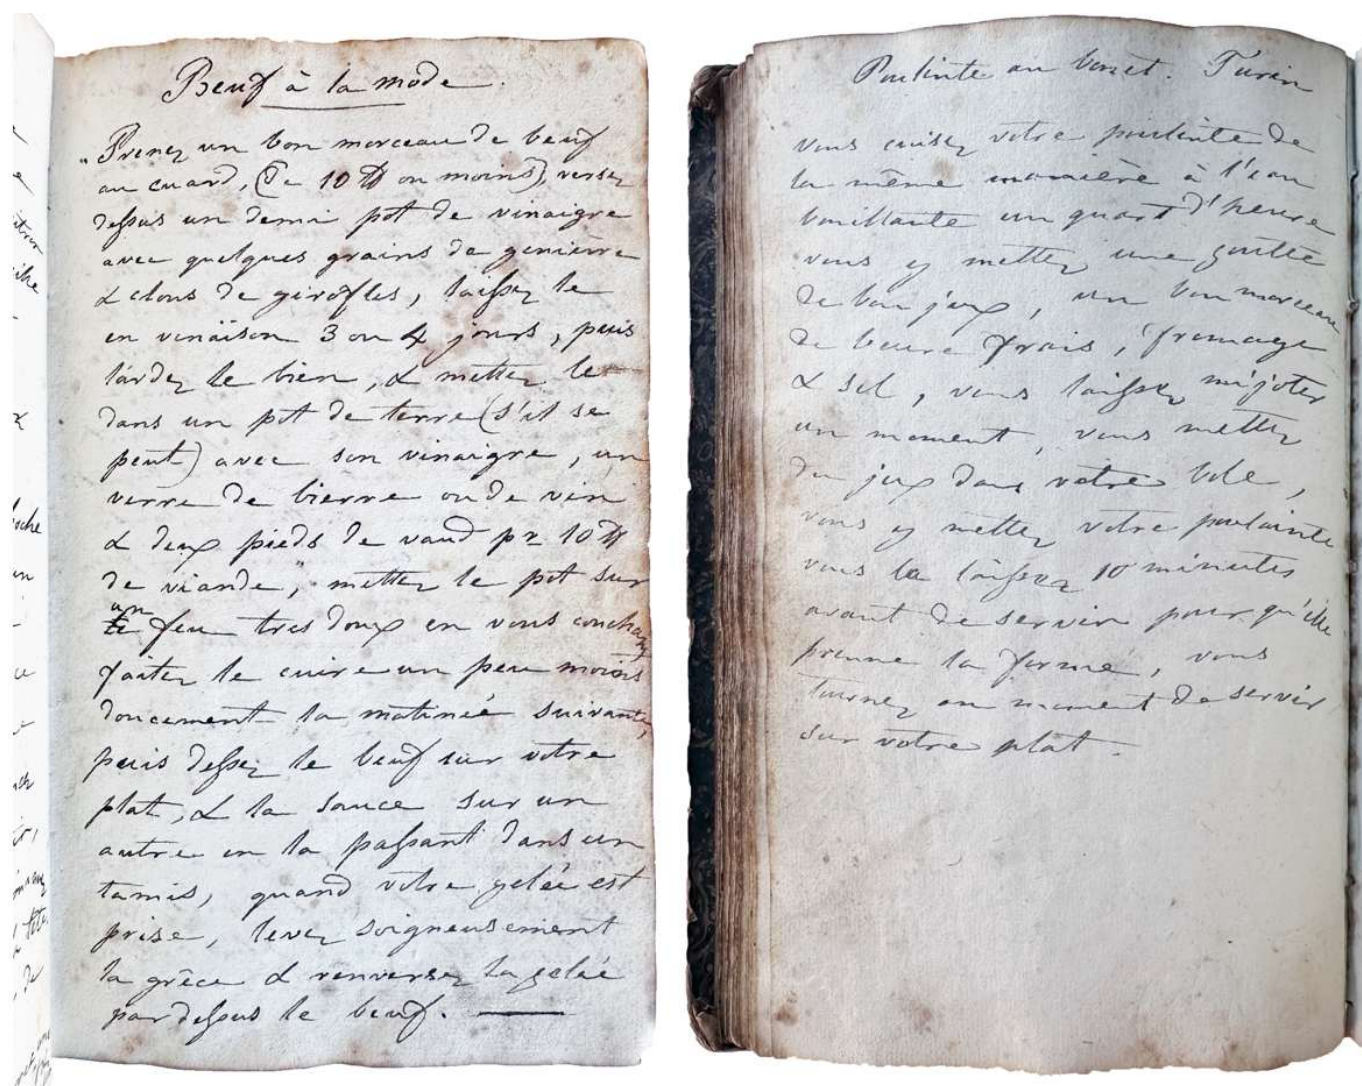 Beuf à la mode.
"Prenez un bon morceau de beuf
au cuard, (de 10 ℔ ou moins), versez
dessus un demi pot de vinaigre
avec quelques grains de genièvre
& clous de girofles, laissez le
en venaison 3 ou 4 jours, puis
lardez le bien, & mettez le
dans un pot de terre (s'il se
peut) avec son vinaigre, un
verre de bierre ou de vin
& deux pieds de vaud pr 10 ℔
de viande", mettez le pot sur
un feu tres doux en vous couchant,
faites le cuire un peu moins
doucement la matinée suivante,
puis dessez le beuf sur votre
plat, & la sauce sur un
autre en la passant dans un
tamis, quand votre gelée est
prise, levez soigneusement
la grêce & renversez la gelée
par dessus le beuf.
Poulinte au Turin
vous cuisez votre poulinte de
la même manière à l'eau
bouillante un quart d'heure
vous y mettez une goutte
de bon jux, un bon morceau
de beure frais, fromage
& sel, vous laissez mijoter
un moment, vous mettez
du jux dans votre
vous y mettez votre poulainte
vous la laissez 10 minutes
avant de servir pour qu'elle
prenne la forme, vous
tournez au moment de servir
sur votre plat.